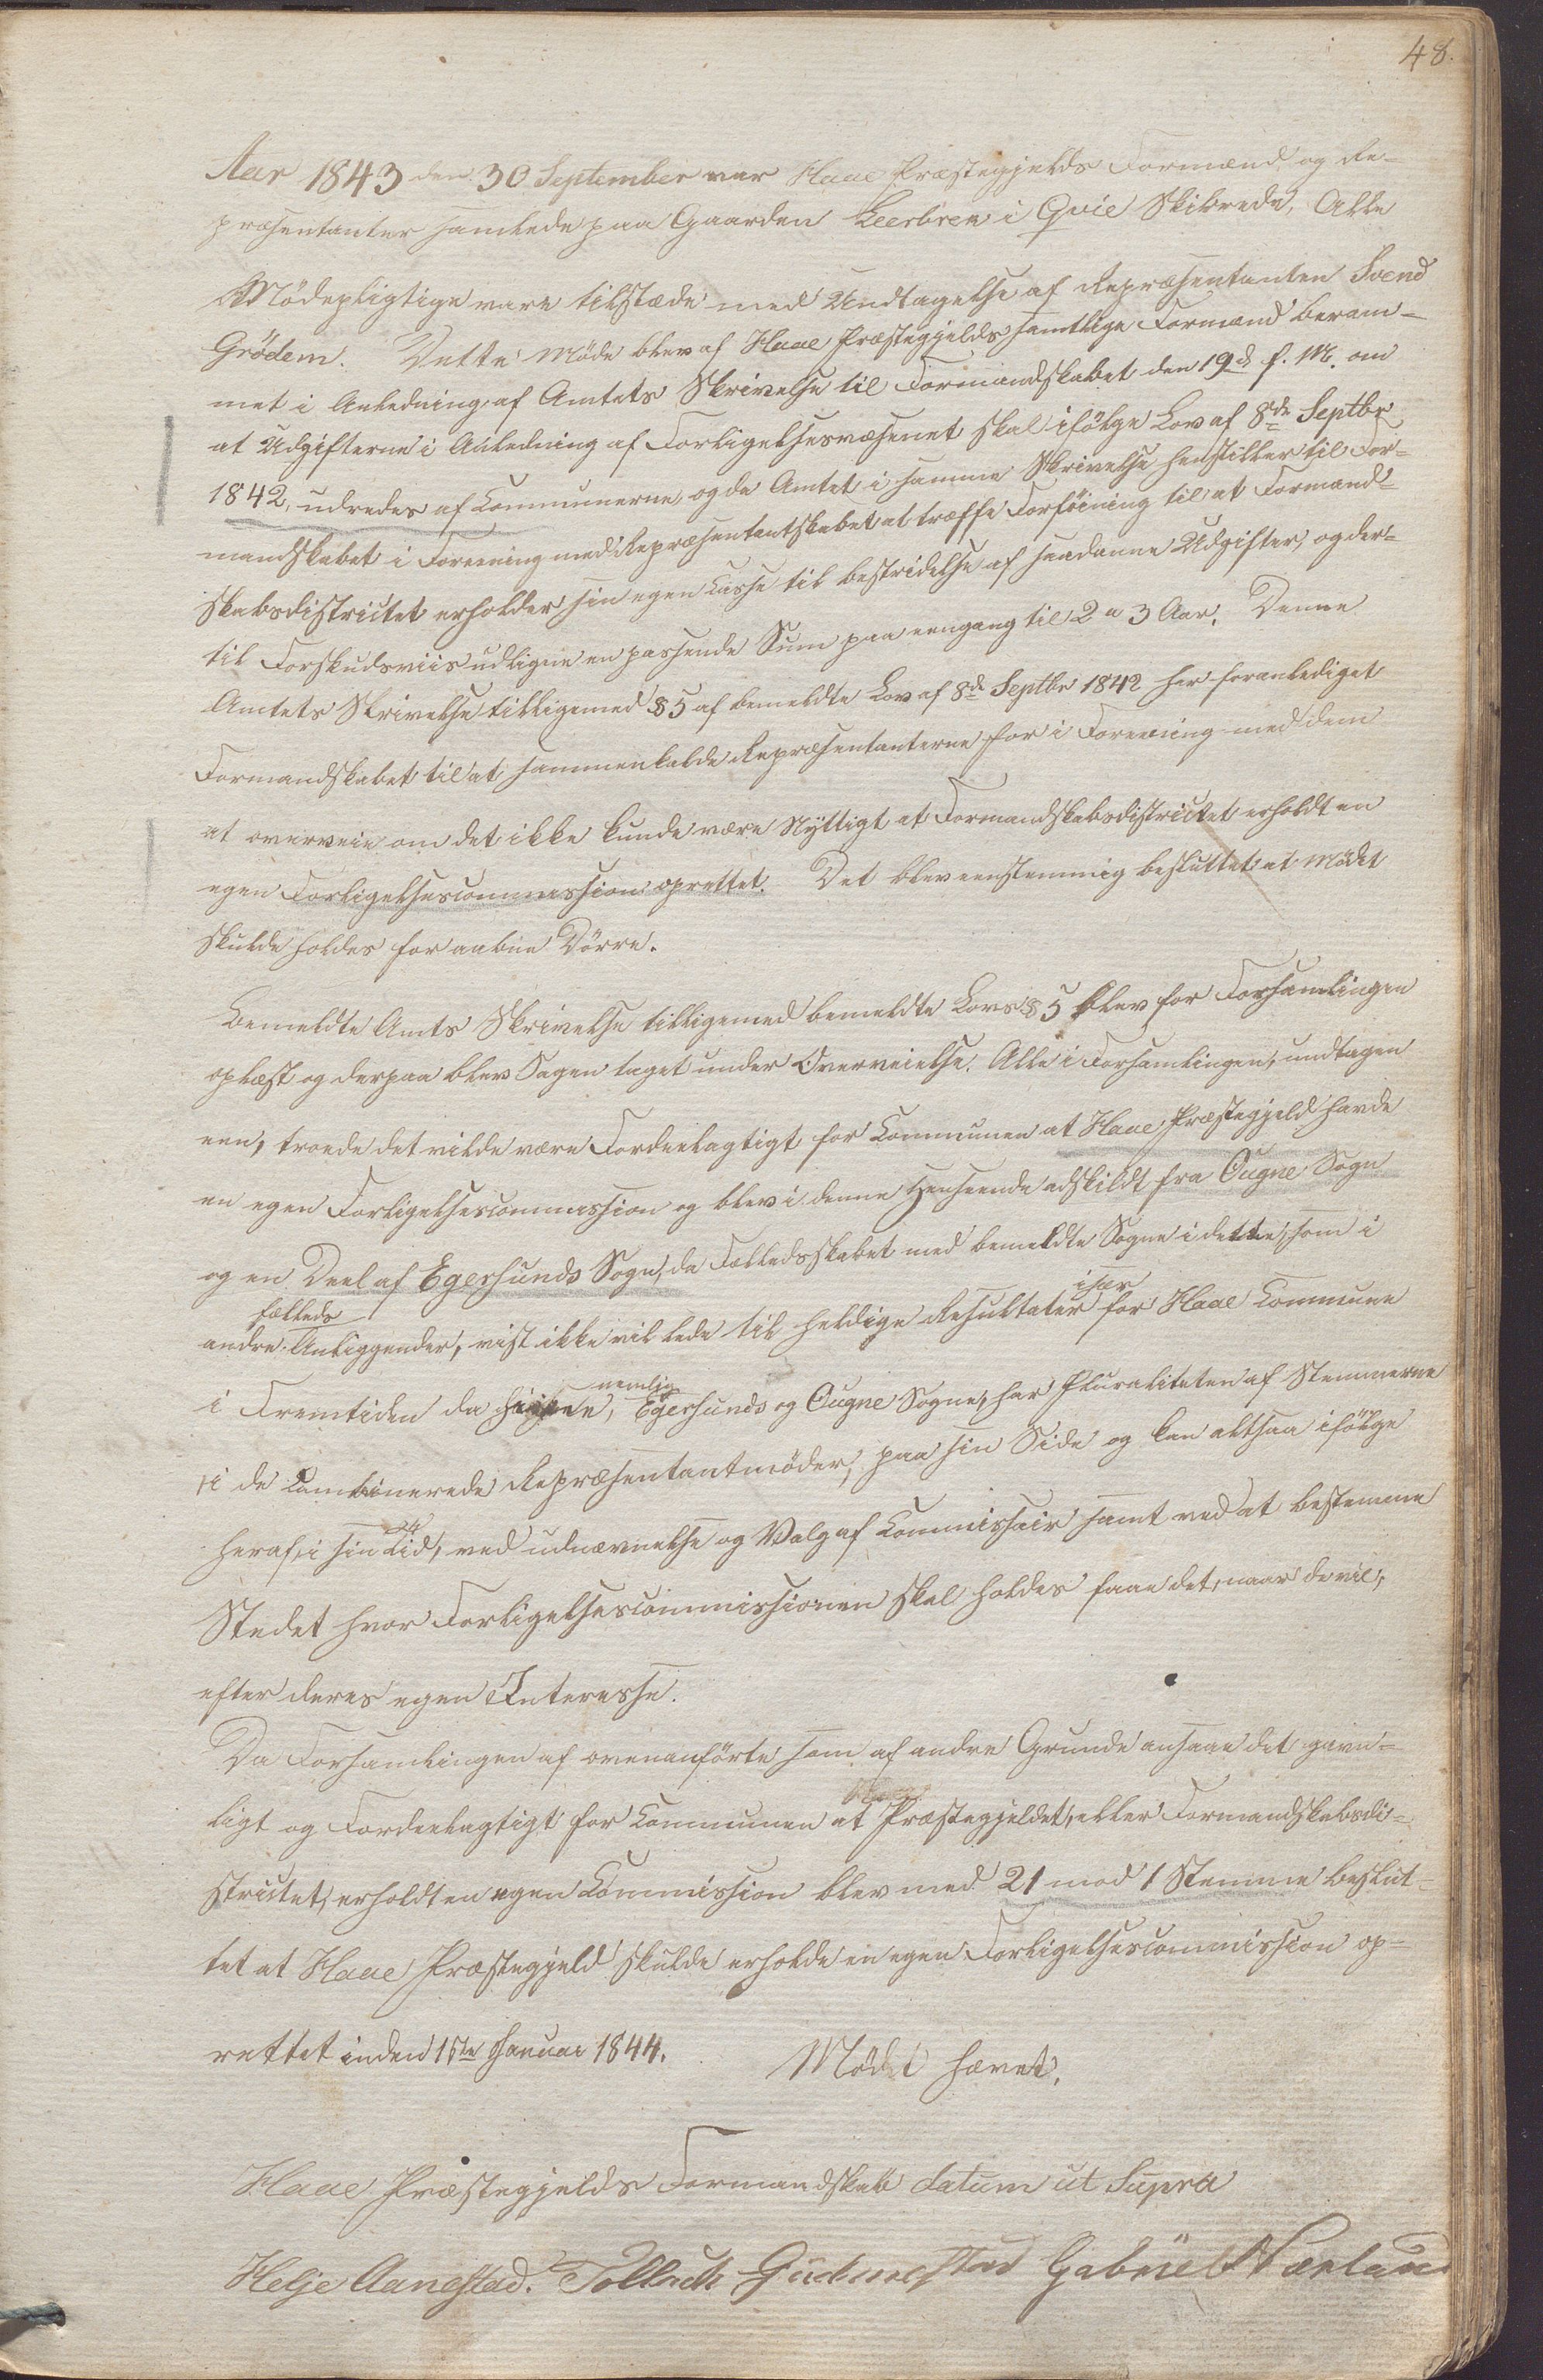 48.
Aar 1843 den 30 September var Haae Præstegjelds Formænd og Re-
præsentanter samlede paa Gaarden Leerbrek i Qvie Skibrede. Alle
Mödepligtige vare tilstæde med Undtagelse af Repræsentanten Svend
Grödem. Dette Möde blev af Haae Præstegjelds samtlige Formænd beram-
met i Anledning af Amtets Skrivelse til Formandskabet den 19d f. M. om
at Udgifterne i Anledning af Forligelsesvæsenet skal ifölge Lov af 8de Septbr
1842, udredes af Communerne, og da Amtet i samme Skrivelse henstiller til For-
mandskabet i Forening med Repræsentantskabet at træffe Forföining til at Formand-
skabsdistrictet erholder sin egen Casse til bestridelse af saadanne Udgifter, og der-
til Forskudsviis udligne en passende Sum paa eengang til 2 a 3 Aar. Denne
Amtets Skrivelse tilligemed § 5 af bemeldte Lov af 8de Septbr 1842 har foranlediget
Formandskabet til at sammenkalde Repræsentanterne for i Forening med dem
at overveie om det ikke kunde være Nyttigt at Formandskabsdistrictet erholdt en
egen Forligelsescommission oprettet. Det blev eenstemmig besluttet at Mödet
skulde holdes for aabne Dörre.
Bemeldte Amts Skrivelse tilligemed bemeldte Lovs § 5 blev for Forsamlingen
oplæst og derpaa blev Sagen taget under Overveielse. Alle i Forsamlingen, undtagen
een, troede det vilde være Fordeelagtigt for Communen at Haae Præstegjeld havde
en egen Forligelsescommission og blev i denne Henseende adskildt fra Ougne Sogn
og en Deel af Egersunds Sogn, da Fælledsskabet med bemeldte Sogne i dette, som i
andre fælleds Anliggender, vist ikke vil lede til heldige Resultater især for Haae Commune
i Fremtiden da hine, nemlig Egersunds og Ougne Sogne, har Pluraliteten af Stemmerne
i de Combinerede Repræsentantmöder, paa sin Side og kan altsaa ifölge
heraf, i sin Tid, ved udnævnelse og Valg af Commissair samt ved at bestemme
Stedet hvor Forligelsescommissionen skal holdes faae det, naar de vil,
efter deres egen Interesse.
Da Forsamlingen af ovenanförte som af andre Grunde ansaae det gavn-
ligt og Fordeelagtigt for Communen at Præstegjeldet, eller Formandskabsdi-
strictet, erholdt en egen Commission blev med 21 mod 1 Stemme beslut-
tet at Haae Præstegjeld skulde erholde en egen Forligelsescommission op-
rettet inden 1ste Januar 1844. Mödet hævet.
Haae Præstegjelds Formandskab datum ut Supra
Helje Aanestad. Tollack Gudmestad Gabriel Nærland